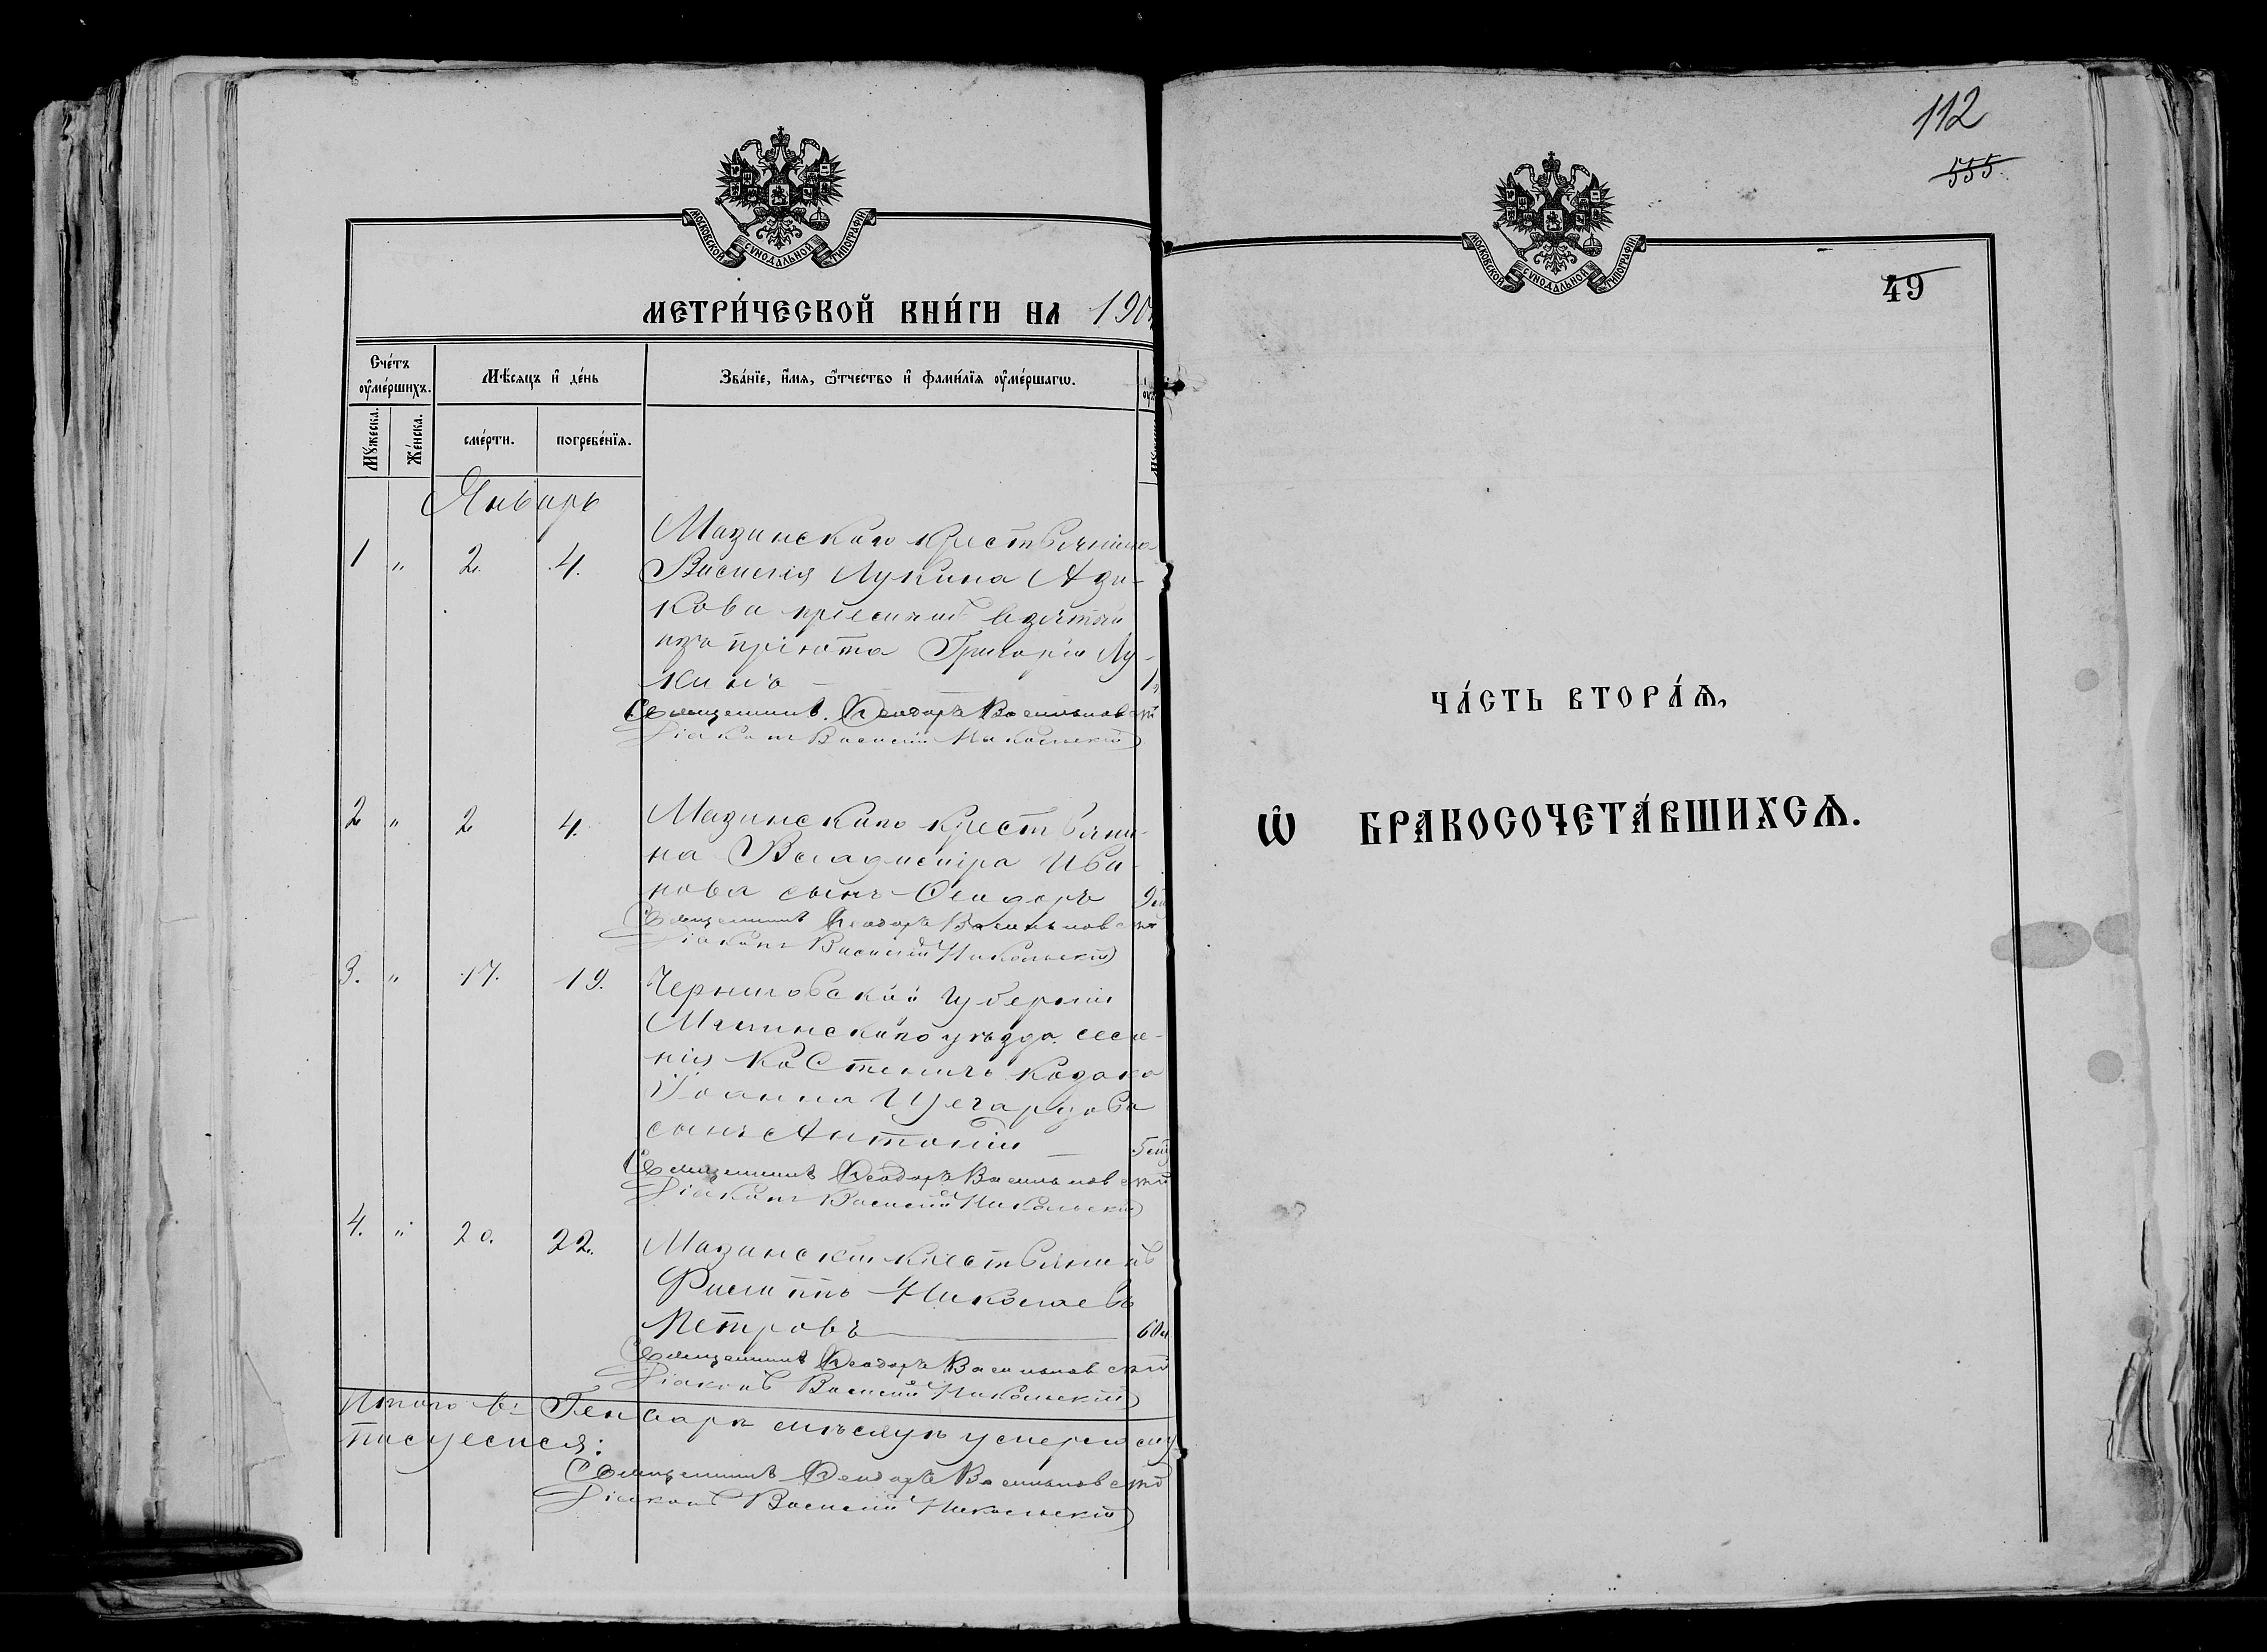 МОСКОВСКОЙ СѴНОДАЛЬНОЙ ТИПОГРАФІИ
МЕТРИ́ЧЕСКОЙ КНИ́ГИ НА 190
Сче́тъ оу҆ме́ршихъ.
Мѣ́сяцъ и҆ де́нь
Зва́нїе, и҆́мѧ, ѻ҆́тчество и҆ фами́лїѧ оу҆ме́ршагѡ.
Мꙋ́жеска.
Же́нска.
сме́рти.
погребе́нїѧ.
Январь
1 „ 2. 4. Мазинскаго крестьянина
Василія Лукина
кова взятый
изъ пріюта Григорій Лу-
кинъ —
Священникъ Ѳеодоръ Васильковскій
Діаконъ Василій Никольскій
2 „ 2 4. Мазинскаго крестьяни-
на Владиміра Ива-
нова сынъ Ѳеодоръ
Священникъ Ѳеодоръ Васильковскій
Діаконъ Василій Никольскій
3. „ 17. 19. Черниговской губерніи
Мглинскаго уѣзда селе-
нія Костеничъ козака
Іоанна
сынъ Антоній —
Священникъ Ѳеодоръ Васильковскій
Діаконъ Василій Никольскій
4. „ 20. 22. Мазинскій крестьянинъ
Филиппъ Николаевъ
Петровъ
Священникъ Ѳеодоръ Васильковскій
Діаконъ Василій Никольскій
Итого въ Генварѣ мѣсяцѣ умерло
Священникъ Ѳеодоръ Васильковскій
Діаконъ Василій Никольскій
112
555.
МОСКОВСКОЙ СѴНОДАЛЬНОЙ ТИПОГРАФІИ
49
ЧА́СТЬ ВТОРА́Ѧ,
Ѡ҆ БРАКОСОЧЕТА́ВШИХСѦ.